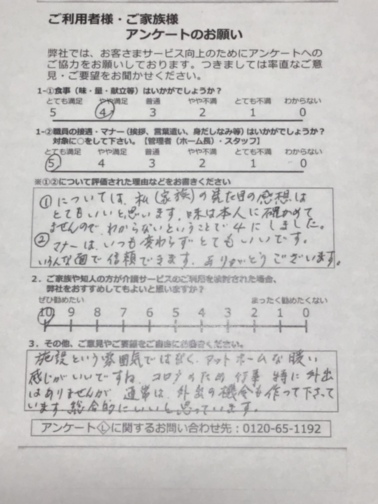 ご利用者様・ご家族様
アンケートのお願い
弊社では、お客さまサービス向上のためにアンケートへの
ご協力をお願いしております。つきましては率直なご意
見・ご要望をお聞かせください。
1-①食事（味・量・献立等）はいかがでしょうか？
とても満足 やや満足 普通 やや不満 とても不満 わからない
5 4 3 2 1 0
1-②職員の接遇・マナー（挨拶、言葉遣い、身だしなみ等）はいかがでしょうか？
対象に○をして下さい。【管理者（ホーム長）・スタッフ】
とても満足 やや満足 普通 やや不満 とても不満 わからない
5 4 3 2 1 0
※①②について評価された理由などをお書きください
①については、私（家族）の見た目の感想は
とてもいいと思います。味は本人に確かめて
ませんので、わからないということで4にしました。
②マナーは、いつも変わらずとてもいいです。
いろんな面で信頼できます。ありがとうございます。
2．ご家族や知人の方が介護サービスのご利用を検討された場合、
弊社をおすすめしてもよいと思いますか？
ぜひ勧めたい まったく勧めたくない
10 9 8 7 6 5 4 3 2 1 0
3．その他、ご意見やご要望をご自由にお書きください。
施設という雰囲気ではなく、アットホームな暖い
感じがいいですね。コロナのため 行事 特に外出
はありませんが、通常は、外出の機会も作って下さって
います。総合的にいいと思っています。
アンケートⓁに関するお問い合わせ先：0120-65-1192